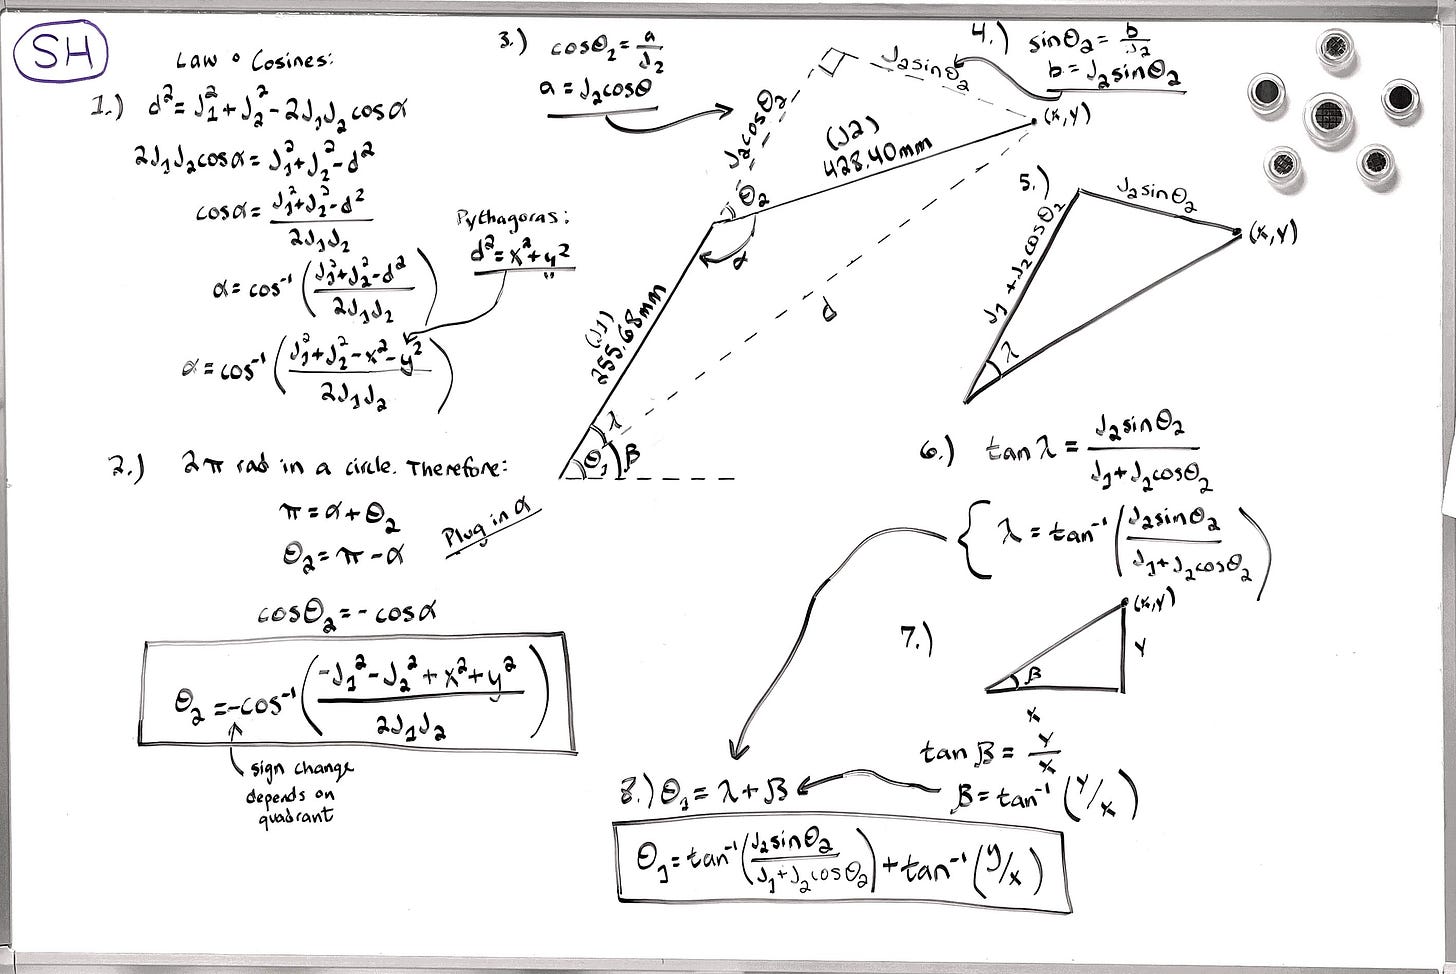 SH
Law o Cosines:
1.) d² = J₁² + J₂² - 2J₁J₂cosα
2J₁J₂cosα = J₁² + J₂² - d²
cosα = (J₁² + J₂² - d²) / 2J₁J₂
α = cos⁻¹((J₁² + J₂² - d²) / 2J₁J₂)
Pythagoras:
d² = x² + y²
α = cos⁻¹((J₁² + J₂² - x² - y²) / 2J₁J₂)
2.) 2π rad in a circle. Therefore:
π = α + θ₂
θ₂ = π - α
Plug in α
cosθ₂ = - cosα
θ₂ = -cos⁻¹((-J₁² - J₂² + x² + y²) / 2J₁J₂)
sign change
depends on
quadrant
3.) cosθ₂ = a/J₂
a = J₂cosθ
4.) sinθ₂ = b/J₂
b = J₂sinθ₂
J₂cosθ₂
J₂sinθ₂
(x,y)
(J2)
428.40mm
θ₂
α
d
(J1)
255.68mm
λ
θ₁
β
5.)
J₂sinθ₂
J₁ + J₂cosθ₂
(x,y)
λ
6.) tanλ = J₂sinθ₂ / (J₁ + J₂cosθ₂)
λ = tan⁻¹(J₂sinθ₂ / (J₁ + J₂cosθ₂))
7.)
(x,y)
y
β
x
tanβ = y/x
β = tan⁻¹(y/x)
8.) θ₁ = λ + β
θ₁ = tan⁻¹(J₂sinθ₂ / (J₁ + J₂cosθ₂)) + tan⁻¹(y/x)